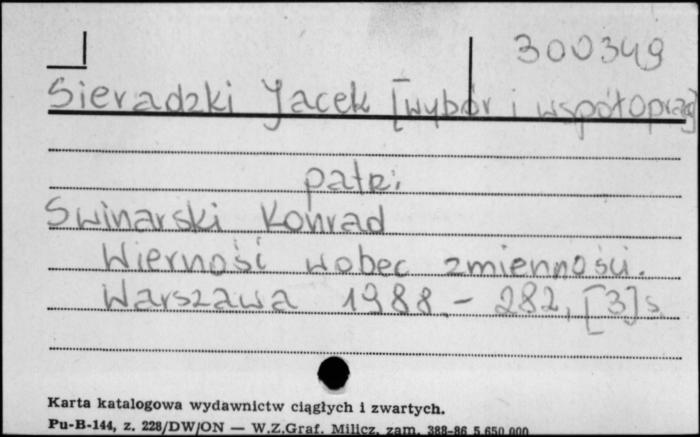 300349
Sieradzki Jacek [wybór i współoprac]
patrz:
Swinarski Konrad
Wierność wobec zmienności.
Warszawa 1988.- 282, [3] s.
Karta katalogowa wydawnictw ciągłych i zwartych.
Pu-B-144, z. 228/DW/ON — W.Z.Graf. Milicz, zam. 388-86 5.650.000